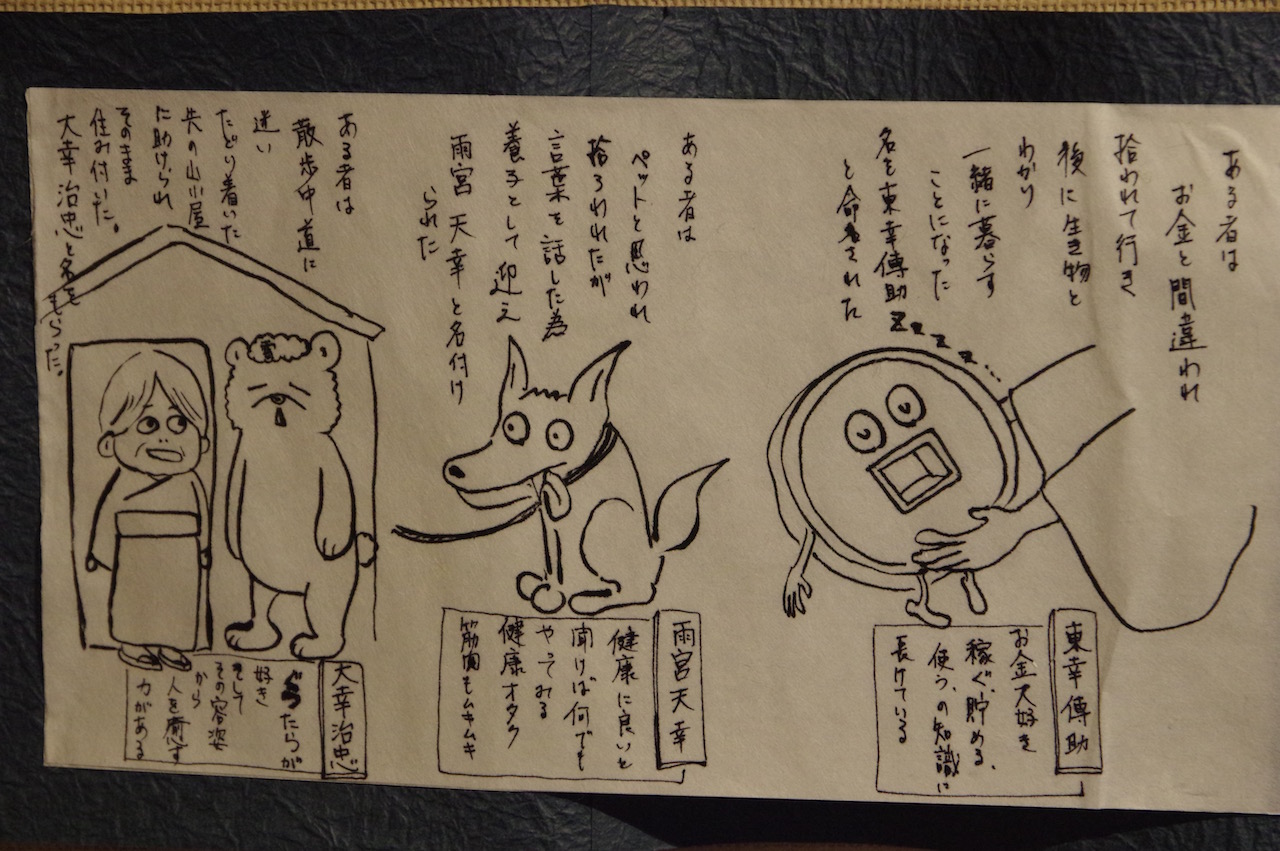 ある者は
お金と間違われ
拾われて行き
後に生き物と
わかり
一緒に暮らす
ことになった
名を東幸傳助
と命名された
zzzz
東幸傳助
お金大好き
稼ぐ、貯める、
使う、の知識に
長けている
ある者は
ペットと思われ
拾ろわれたが
言葉を話した為
養子として迎え
雨宮 天幸と名付け
られた
雨宮天幸
健康に良いと
聞けば何でも
やってみる
健康オタク
筋肉もムキムキ
ある者は
散歩中道に
迷い
たどり着いた
先の山小屋
に助けられ
そのまま
住み付いた。
大幸治忠と名を
もらった。
大幸治忠
ぐうたらが
好き
そして
その容姿
から
人を癒す
力がある